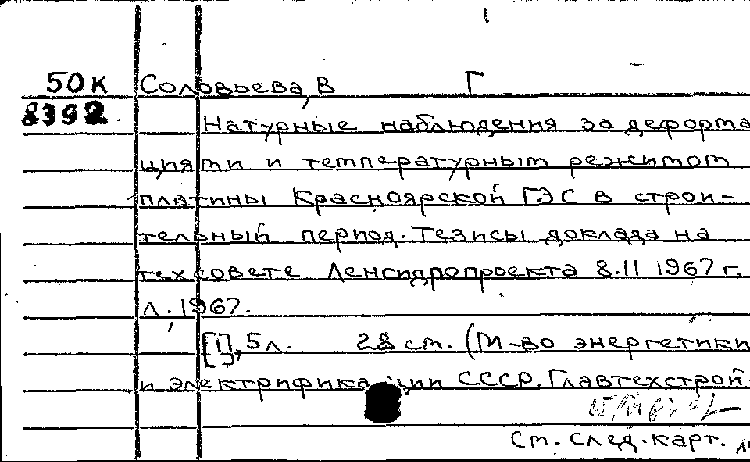 50К Соловьева, В Г
8392
Натурные наблюдения за деформа
циями и температурным режимом
плотины Красноярской ГЭС в строи-
тельный период. Тезисы доклада на
техсовете Ленгидропроекта 8.11 1967 г.
Л. 1967.
[1], 5 л. 28 см. (М-во энергетики
и электрификации СССР. Главтехстрой
См. след. карт.